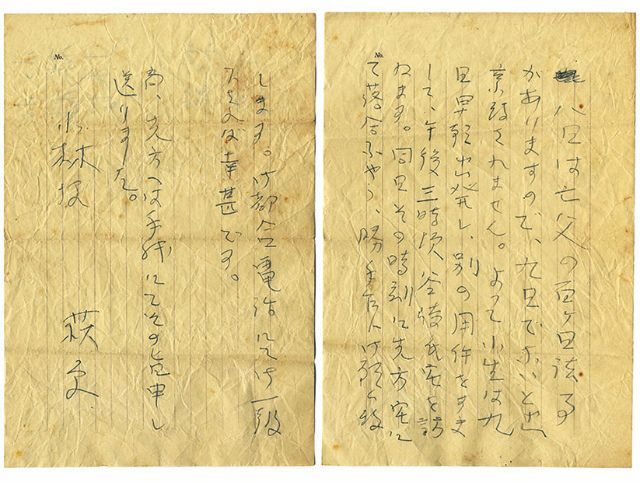 No.
八日は亡父の百ヶ日法事
がありますので、九日でないと出
京致されません。よって小生は九
日早朝出発し、別の用件をすま
して、午後三時頃 氏宅を訪
ねます。同日その時刻に先方宅に
て落合ふやう、勝手乍ら御願ひ致
No.
します。御都合電話にて御一報
幸甚です。
尚、先方へは手紙にてその旨申し
送りました。
小林様